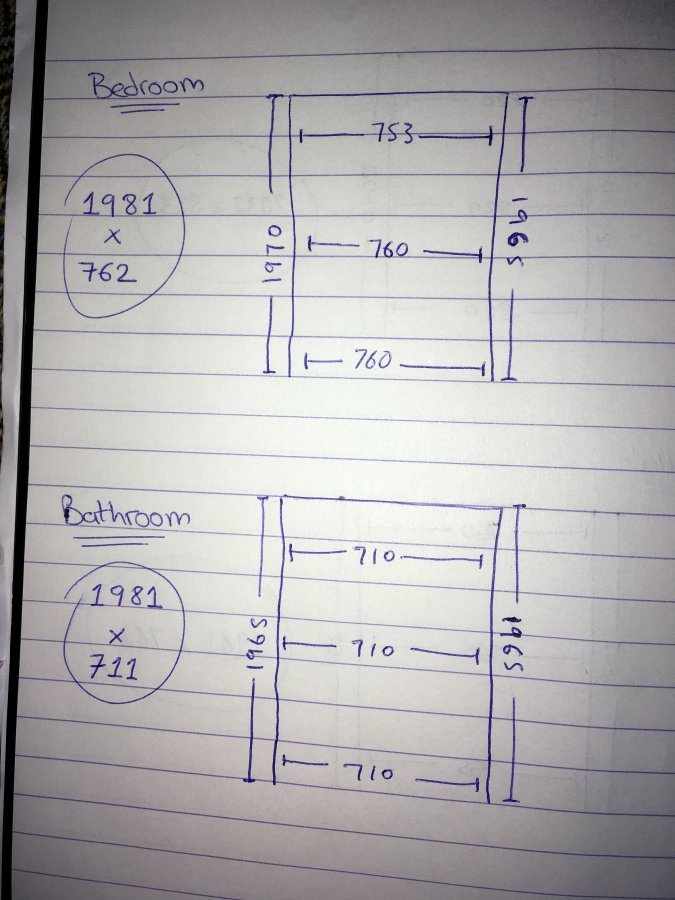 Bedroom
1981
x
762
753
760
760
1970
1965
Bathroom
1981
x
711
710
710
710
1965
1965